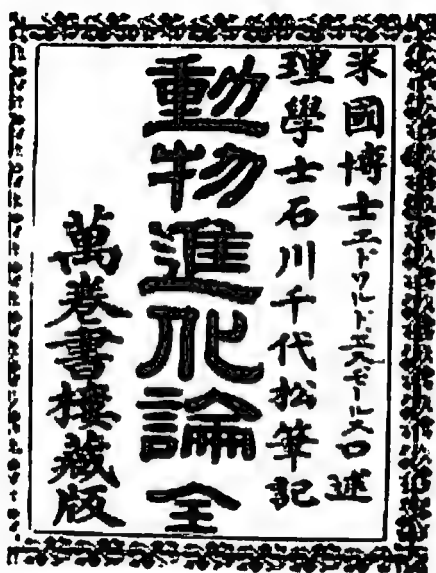 米國博士エドワルド、エス、モールス口述
理學士石川千代松筆記
動物進化論 全
萬巻書樓藏版